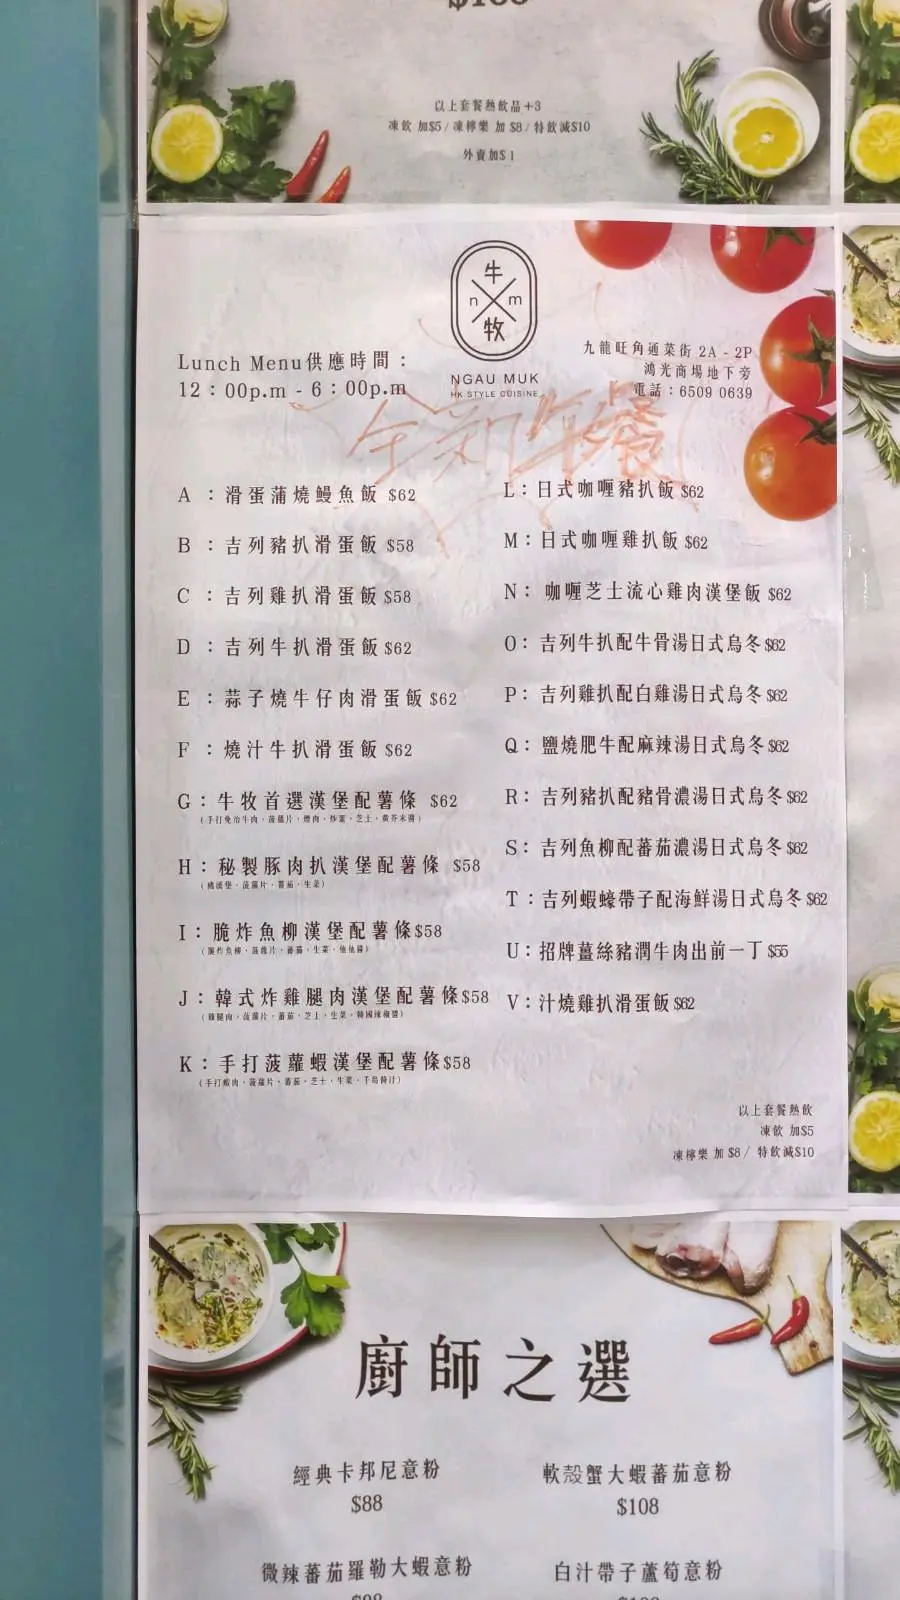 以上套餐熱飲品+3
凍飲 加$5 / 凍檸樂 加 $8 / 特飲減$10
外賣加$ 1
牛
n m
牧
NGAU MUK
HK STYLE CUISINE
Lunch Menu供應時間：
12：00p.m - 6：00p.m
九龍旺角通菜街 2A - 2P
鴻光商場地下旁
電話：6509 0639
全新午餐
A ：滑蛋蒲燒鰻魚飯 $62
B ：吉列豬扒滑蛋飯 $58
C ：吉列雞扒滑蛋飯 $58
D ：吉列牛扒滑蛋飯 $62
E ：蒜子燒牛仔肉滑蛋飯 $62
F ：燒汁牛扒滑蛋飯 $62
G：牛牧首選漢堡配薯條 $62
（手打免治牛肉，菠蘿片，煙肉，炒蛋，芝士，黃芥末醬）
H：秘製豚肉扒漢堡配薯條 $58
I：脆炸魚柳漢堡配薯條$58
（脆炸魚柳，菠蘿片，蕃茄，生菜，他他醬）
J：韓式炸雞腿肉漢堡配薯條$58
（雞腿肉，菠蘿片，蕃茄，芝士，生菜，韓國辣椒醬）
K：手打菠蘿蝦漢堡配薯條$58
（手打蝦肉，菠蘿片，蕃茄，芝士，生菜，千島醬汁）
L：日式咖喱豬扒飯 $62
M：日式咖喱雞扒飯 $62
N：咖喱芝士流心雞肉漢堡飯 $62
O：吉列牛扒配牛骨湯日式烏冬$62
P：吉列雞扒配白雞湯日式烏冬$62
Q：鹽燒肥牛配麻辣湯日式烏冬$62
R：吉列豬扒配豬骨濃湯日式烏冬$62
S：吉列魚柳配蕃茄濃湯日式烏冬$62
T：吉列蝦蠔帶子配海鮮湯日式烏冬$62
U：招牌薑絲豬潤牛肉出前一丁$55
V：汁燒雞扒滑蛋飯$62
以上套餐熱飲
凍飲 加$5
凍檸樂 加 $8 / 特飲減$10
廚師之選
經典卡邦尼意粉
$88
軟殼蟹大蝦蕃茄意粉
$108
微辣蕃茄羅勒大蝦意粉
白汁帶子蘆筍意粉